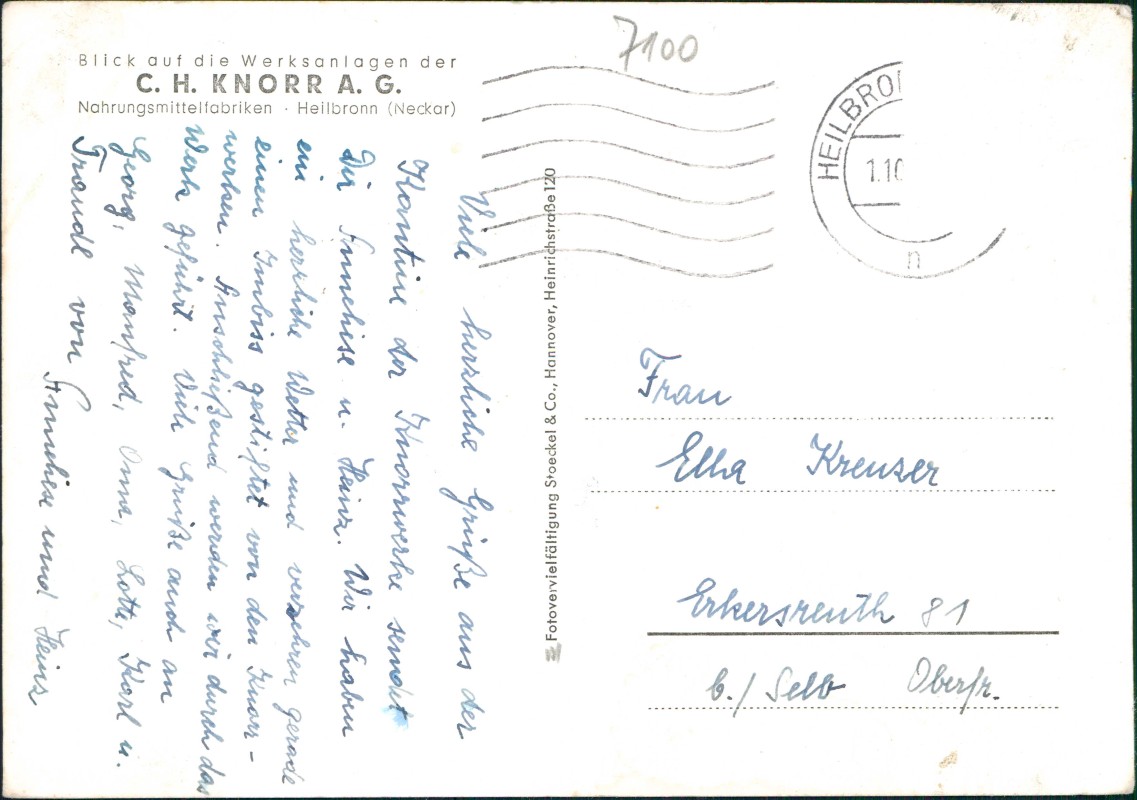 7100
Blick auf die Werksanlagen der
C. H. KNORR A. G.
Nahrungsmittelfabriken · Heilbronn (Neckar)
Viele herzliche Grüße aus der
Kantine der Knorrwerke sendet
Dir Anneliese u. Heinz. Wir haben
ein herrliche Wetter und verzehren gerade
einen Imbiss gestiftet von den Knorr-
werken. Anschließend werden wir durch das
Werk geführt. Viele Grüße auch an
Georg, Manfred, Oma, Lotte, Karl u.
Traudl von Anneliese und Heinz
Fotovervielfältigung Stoeckel & Co., Hannover, Heinrichstraße 120
HEILBRO
1.10
n
Frau
Ella Kreuzer
Erkersreuth 81
b./ Selb Oberfr.